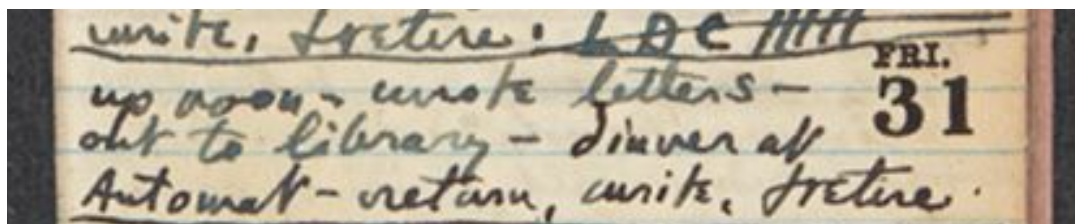 write, & retire. LDC
FRI.
31
up noon - wrote letters -
out to library - dinner at
Automat - return, write, & retire.